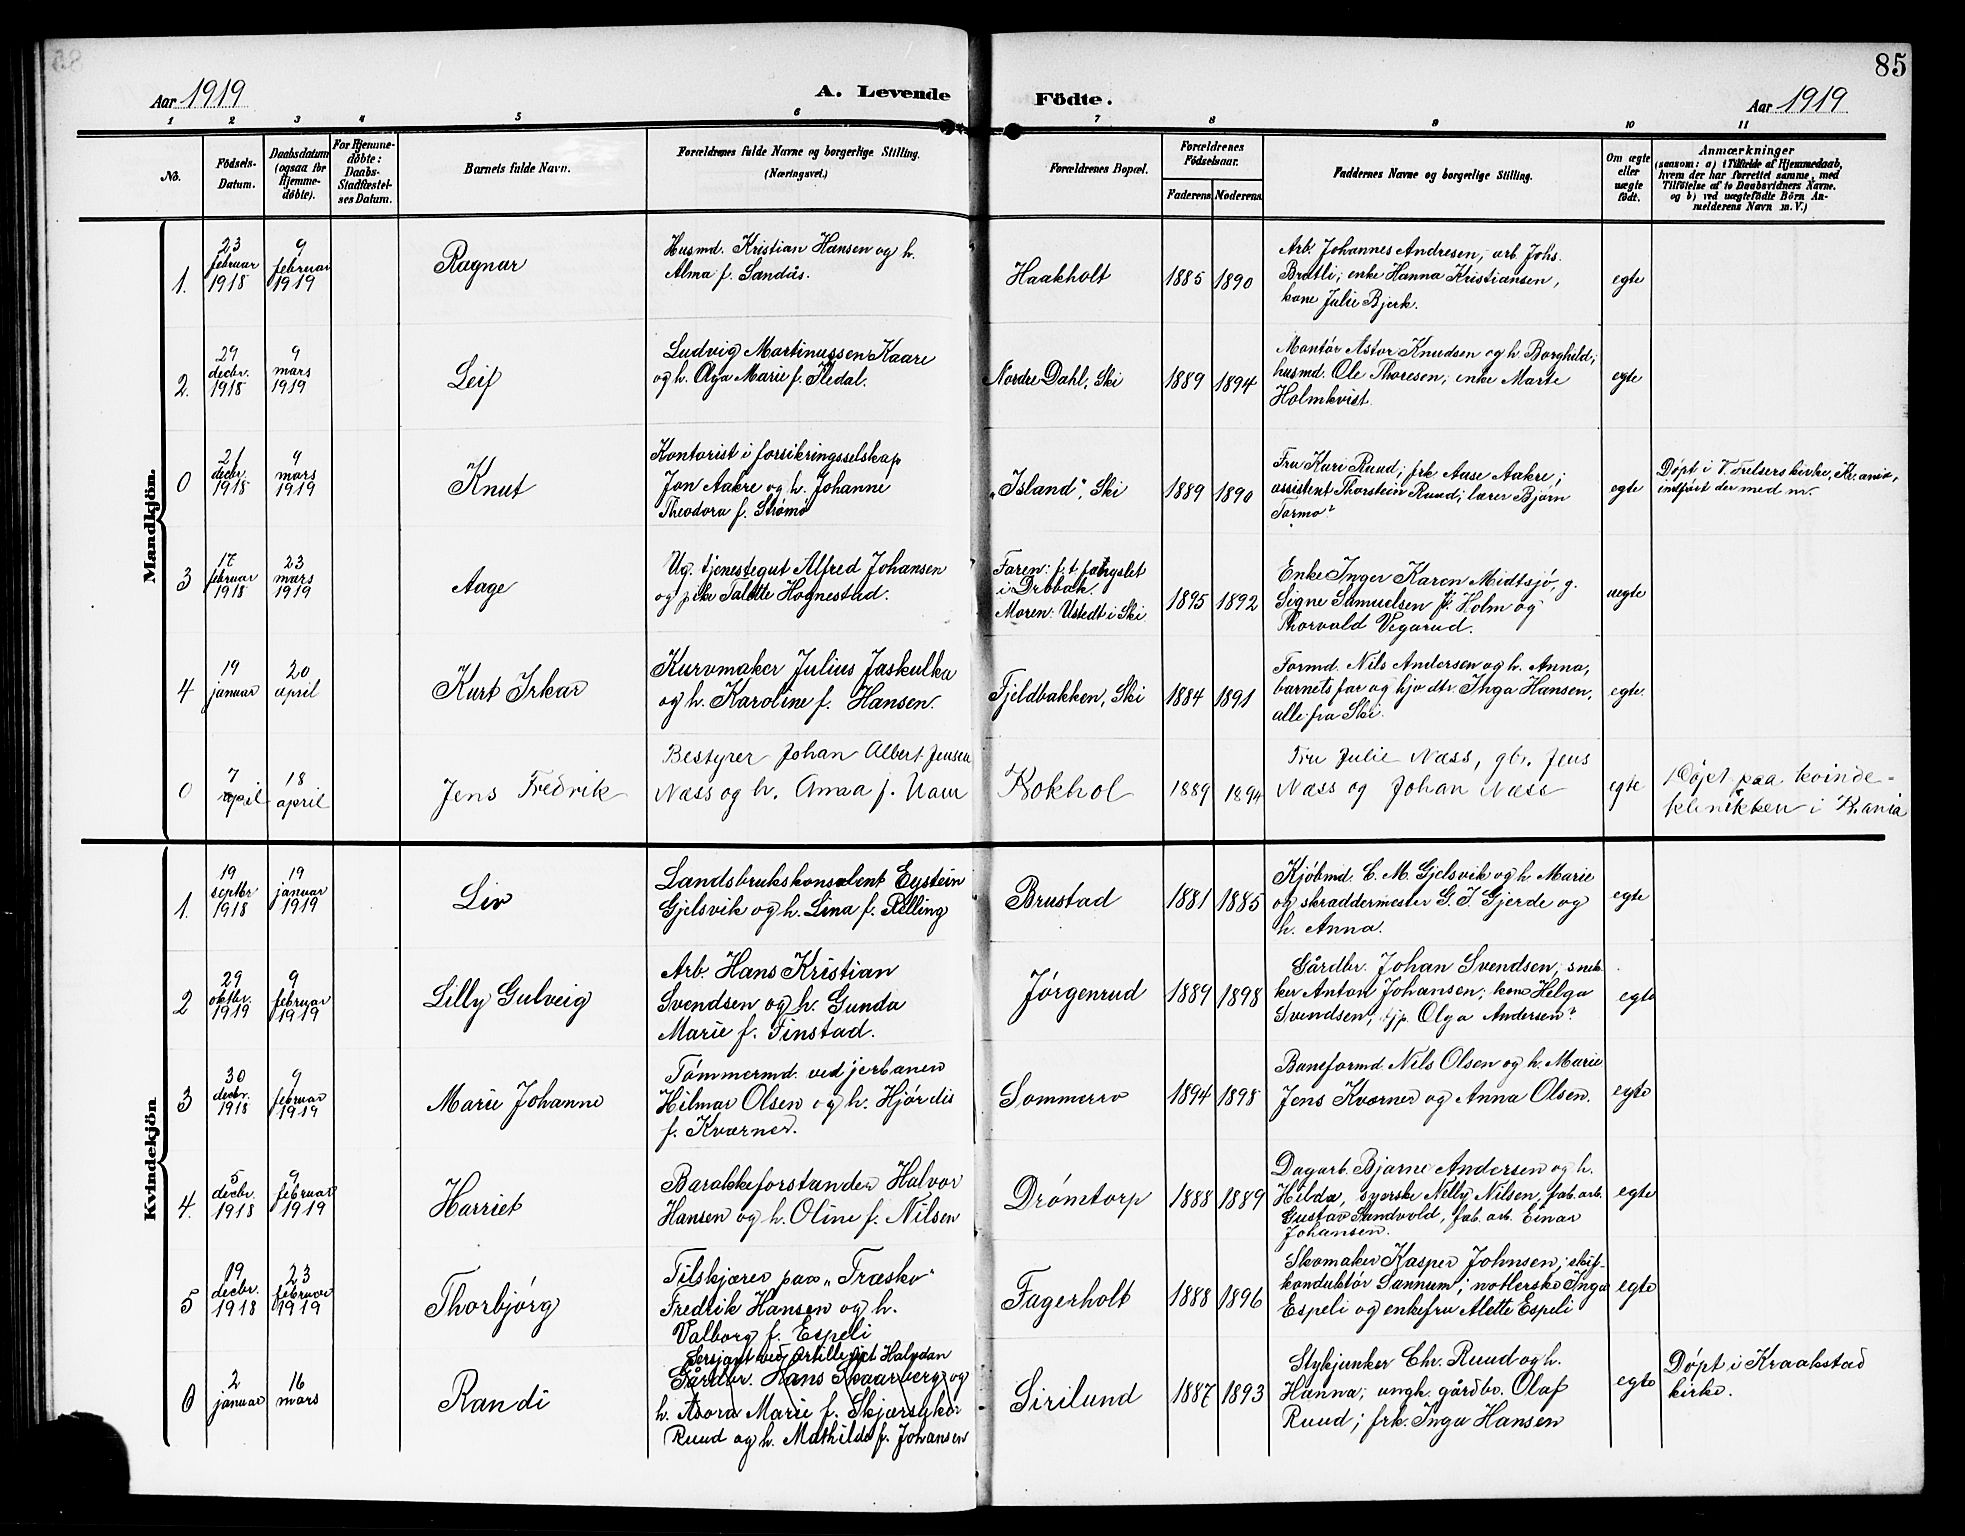 85
Aar 1919
A. Levende Födte.
Aar 1919
1 2 3 4 5 6 7 8 9 10 11
No.
Födsels-
Datum.
Daabsdatum
(ogsaa for
Hjemme-
døbte).
For Hjemme-
døbte:
Daabs-
Stadfæstel-
ses Datum.
Barnets fulde Navn.
Forældrenes fulde Navne og borgerlige Stilling.
(Næringsvei.)
Forældrenes Bopæl.
Forældrenes
Födselsaar.
Faderens. Moderens.
Faddernes Navne og borgerlige Stilling.
Om ægte
eller
uægte
født.
Anmærkninger
(saasom: a) i Tilfælde af Hjemmedaab,
hvem der har forrettet samme, med
Tilføielse af to Daabsvidners Navne.
og b) ved uægtefødte Börn An-
melderens Navn m. V.)
Mandkjön.
1.
23
februar
1918
9
februar
1919
Ragnar
Husmd. Kristian Hansen og h.
Alma f. Sandås.
Haakholt
1885 1890
Arb. Johannes Andresen, arb. Johs.
Bratli; enke Hanna Kristiansen,
kone Julie Bjerk.
egte
2.
29
decbr.
1918
9
mars
1919
Leif
Ludvig Martinussen Kaare
og h. Olga Marie f. Fledal.
Nordre Dahl, Ski
1889 1894
Montör Astor Knudsen og h. Borghild;
husmd. Ole Thoresen; enke Marte
Holmkvist.
egte
0
21
decbr.
1918
9
mars
1919
Knut
Kontorist i forsikringsselskap
Jon Aakre og h. Johanne
Theodora f. Strømø
„Island“, Ski
1889 1890
Fru Kari Ruud; frk Aase Aakre;
assistent Thorstein Ruud; lærer Bjørn
Tormo
egte
Døpt i V. Frelsers kirke, Kr.ania,
indført der med nr.
3
17
februar
1918
23
mars
1919
Aage
Ug. tjenestegut Alfred Johansen
og pike Talette Hognestad.
Faren: f.t. fængslet
i Drøbak.
Moren: Ustedt i Ski
1895 1892
Enke Inger Karen Midtsjø, g.
Signe Samuelsen f. Holm og
Thorvald Vegarud.
uegte
4
19
januar
20
april
Kurt Irkar
Kurvmaker Julius Jaskulka
og h. Karoline f. Hansen.
Fjeldbakken, Ski
1884 1891
Formd. Nils Andersen og h. Anna,
barnets far og hjv. dtr. Inga Hansen,
alle fra Ski.
egte.
0
7
april
18
april
Jens Fredrik
Bestyrer Johan Albert Jensen
Næss og h. Anna f. Ham
Kokhol
1889 1894
Fru Julie Næss, gbr. Jens
Næss og Johan Næss
egte
Døpt paa kvinde-
klinikken i Kr.ania
Kvindekjön
1.
19
septbr
1918
19
januar
1919
Liv
Landsbrukskonsulent Eystein
Gjelsvik og h. Lina f. Relling
Brustad
1881 1885
Kjøbmd. C. M. Gjelsvik og h. Marie
og skræddermester G. I. Gjerde og
h. Anna.
egte
2
29
oktbr.
1919
9
februar
1919
Lilly Gulveig
Arb. Hans Kristian
Svendsen og h. Gunda
Marie f. Finstad.
Jørgenrud
1889 1898
Gårdbr. Johan Svendsen, snek-
ker Anton Johansen; kone Helga
Svendsen, tjp. Olga Andersen
egte
3
30
decbr.
1918
9
februar
1919
Marie Johanne
Tømmermd. ved jerbanen
Hilmar Olsen og h. Hjørdis
f. Kværner.
Sommerro
1894 1898
Baneformd. Nils Olsen og h. Marie
Jens Kværner og Anna Olsen.
egte
4.
5
decbr.
1918
9
februar
1919
Harriet
Barakkeforstander Halvor
Hansen og h. Oline f. Nilsen
Drømtorp
1888 1889
Dagarb. Bjarne Andersen og h.
Hilda, syerske Nelly Nilsen, fab. arb.
Gustav Sandvold, fab. arb. Einar
Johansen.
egte
5
19
decbr.
1918
23
februar
1919
Thorbjørg
Tilskjærer paa „Træsko“
Fredrik Hansen og h.
Valborg f. Espeli
Fagerholt
1888 1896
Skomaker Kasper Johnsen; skif-
konduktör Sannum; Inga
Espeli og enkefru Alette Espeli
egte
0
2
januar
16
mars
Randi
Sersjant ved artilleriet Halvdan
Gårdbr. Hans Skaarberg og
h. Asora Marie f. Skjærsyker
Ruud og h. Mathilde f. Johansen
Sirilund
1887 1893
Stykjunker Chr. Ruud og h.
Hanna; ungk. gårdbr. Olaf
Ruud; frk. Inga Hansen
egte
Døpt i Kraakstad
kirke.